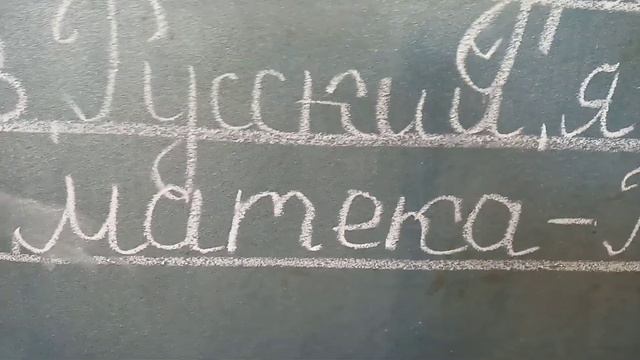 Русский, я
матека -